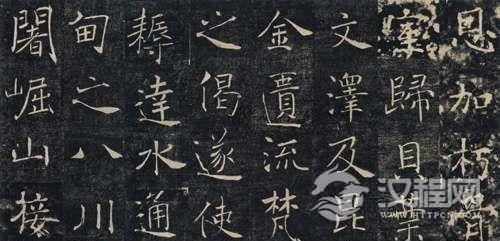 恩加朽骨
室歸貝葉
文澤及昆
金匱流梵
之偈遂使
耨達水通
甸之八川
闍崛山接
汉程网
HTTPCN.COM